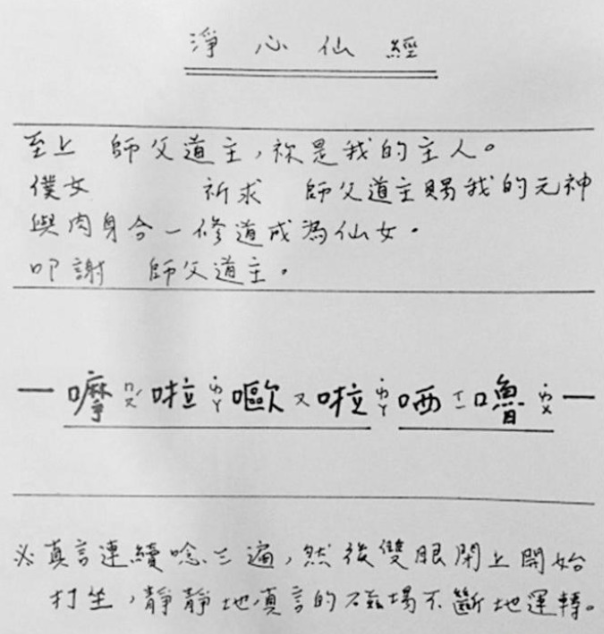 淨心仙經
至上 師父道主,祢是我的主人。
僕女 祈求 師父道主賜我的元神
與肉身合一修道成為仙女。
叩謝 師父道主。
一嚤ㄇㄛˊ啦ㄌㄚ嘔ㄡ啦ㄌㄚ哂ㄒㄧ嚕ㄌㄨ一
※真言連續唸三遍,然後雙眼閉上開始
打坐,靜靜地真言的磁場不斷地運轉。